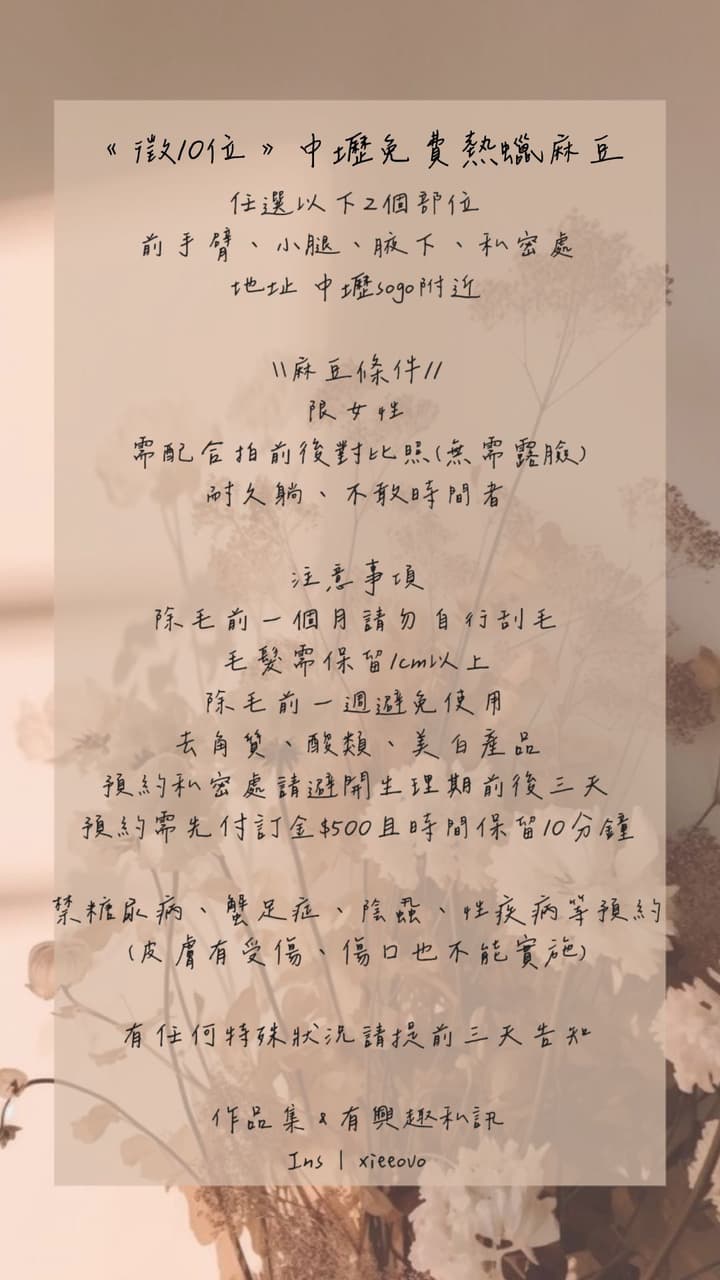 《徵10位》中壢免費熱蠟麻豆
任選以下2個部位
前手臂、小腿、腋下、私密處
地址 中壢sogo附近
\\麻豆條件//
限女性
需配合拍前後對比照(無需露臉)
耐久躺、不敢時間者
注意事項
除毛前一個月請勿自行刮毛
毛髮需保留1cm以上
除毛前一週避免使用
去角質、酸類、美白產品
預約私密處請避開生理期前後三天
預約需先付訂金$500且時間保留10分鐘
禁糖尿病、蟹足症、陰蝨、性疾病等預約
(皮膚有受傷、傷口也不能實施)
有任何特殊狀況請提前三天告知
作品集&有興趣私訊
Ins | xieeovo